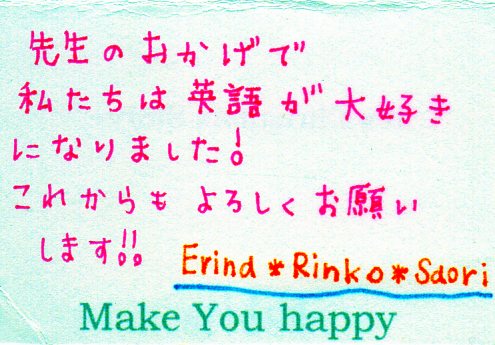 先生のおかげで
私たちは英語が大好き
になりました!
これからもよろしくお願い
します!!
Erina＊Rinko＊Saori
Make You happy